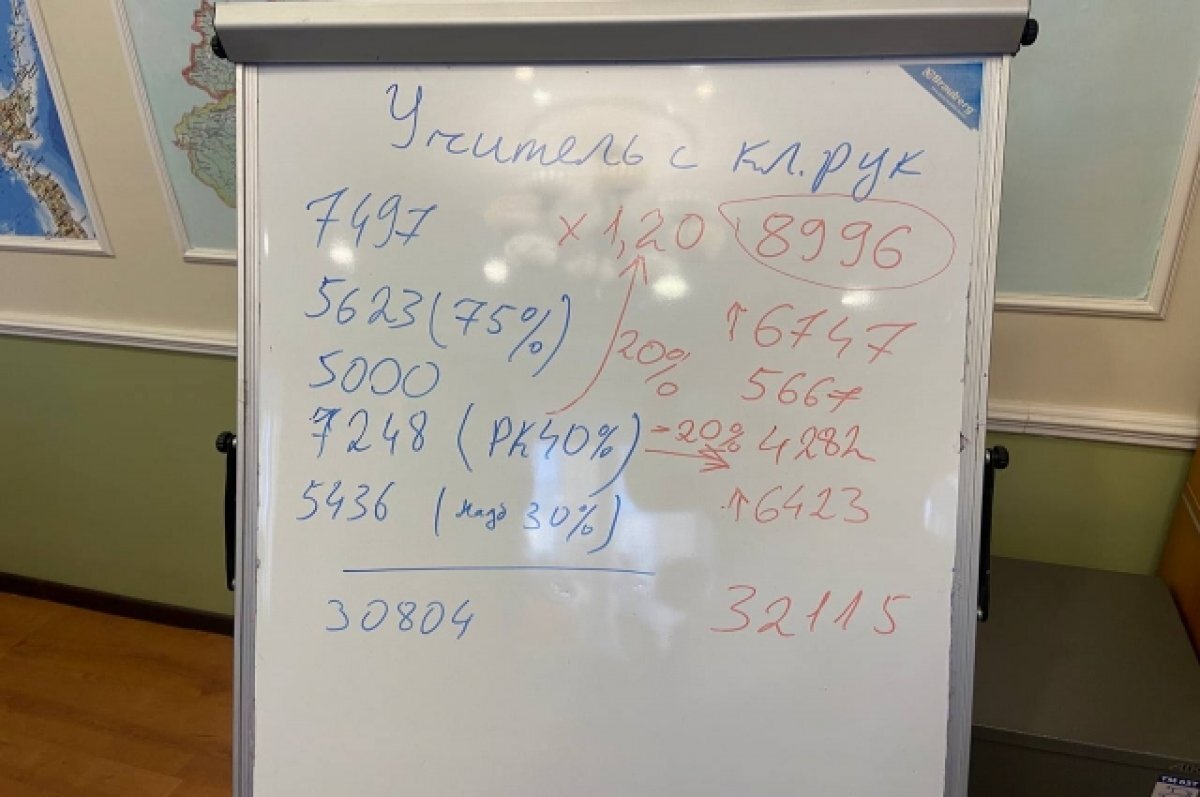 Brauberg
Учитель с кл.рук
7497 х 1,20 8996
5623 (75%) ↑6747
20%
5000 5667
7248 (РК40%) -20% 4282
5436 (надб 30%) ↑6423
30804 32115